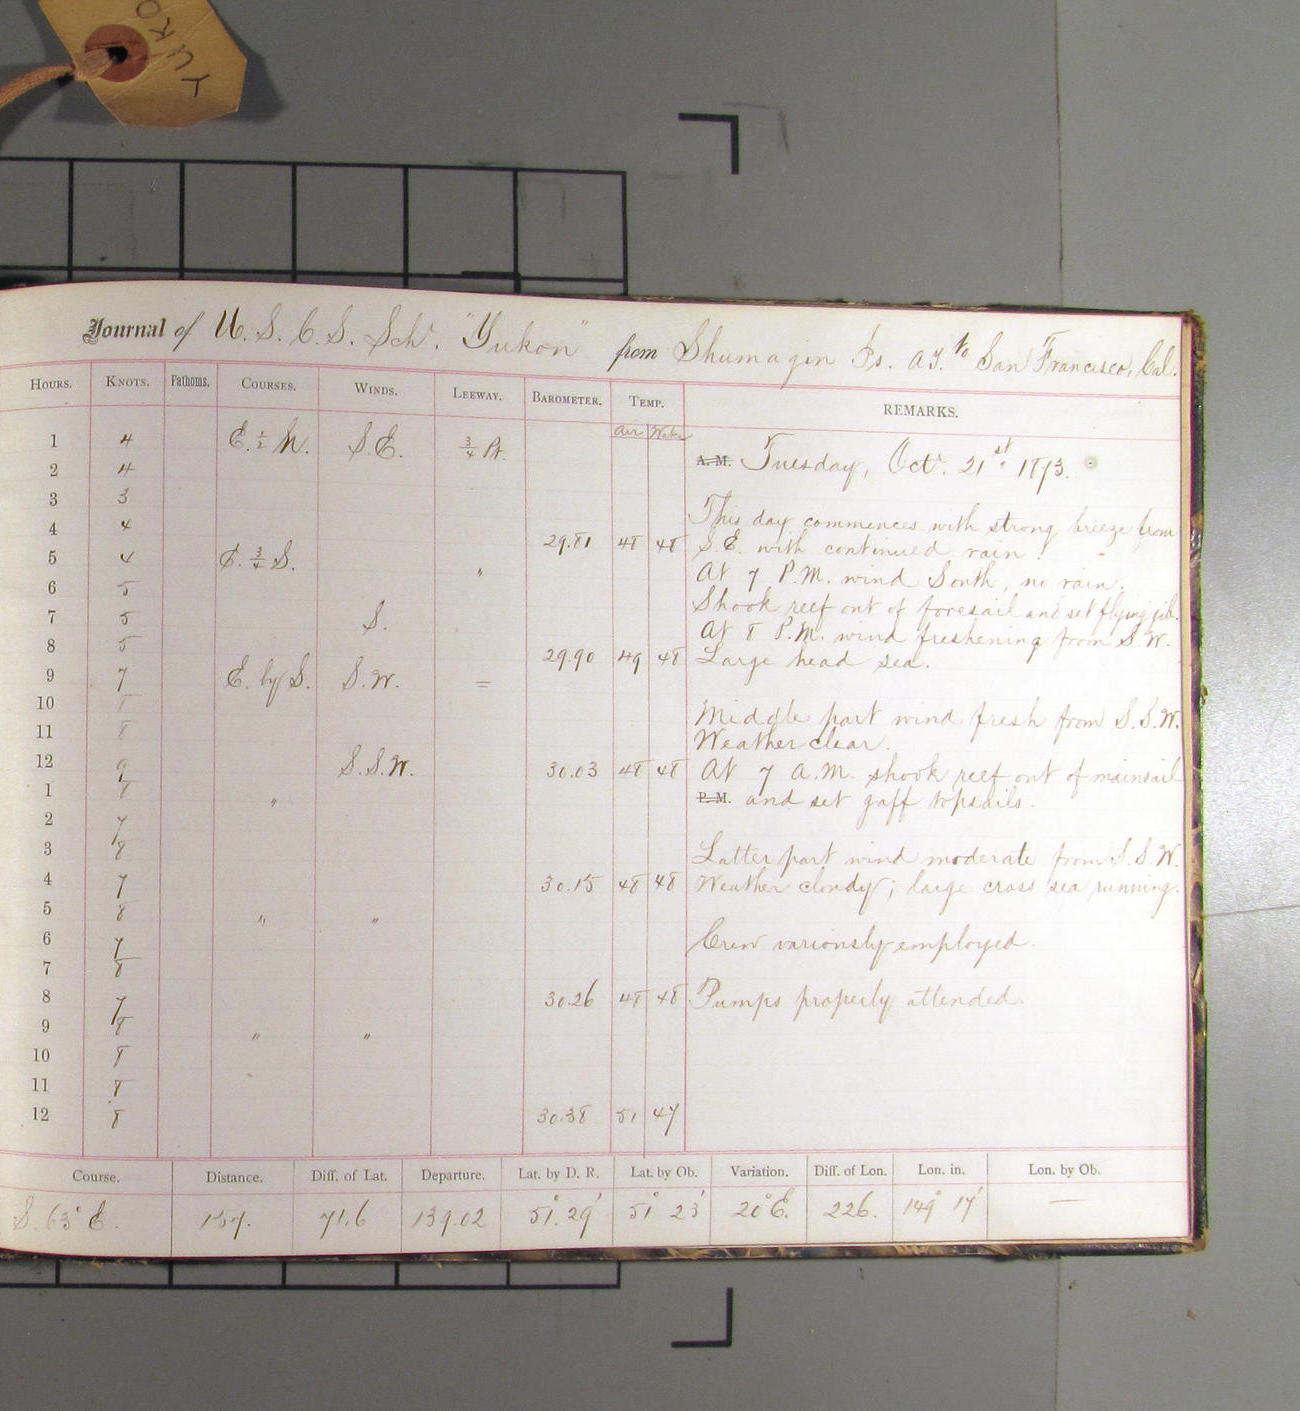 YUKO
Journal of U. S. C. S. Schr. "Yukon" from Shumagin Is. A.T. to San Francisco, Cal.
HOURS. KNOTS. Fathoms. COURSES. WINDS. LEEWAY. BAROMETER. TEMP. REMARKS.
Air Water
1 4 E. ½ N. S.E. ¾ Pt.
A.M. Tuesday, Octr. 21st 1873.
2 4
3 3
This day commences with strong breeze from
4 4 29.81 48 48 S.E. with continued rain.
5 4 E. ¾ S. "
At 7 P.M. wind South, no rain.
6 5
Shook reef out of foresail and set flying jib.
7 5 S.
At 8 P.M. wind freshening from S.W.
8 5 29.90 49 48 Large head sea.
9 7 E. by S. S.W. =
10 8
Middle part wind fresh from S.S.W.
11 8
Weather clear.
12 9 S.S.W. 30.03 48 48 At 7 A.M. shook reef out of mainsail
1 8 "
P.M. and set gaff topsails.
2 7
3 8
Latter part wind moderate from S.S.W.
4 7 30.15 48 48 Weather cloudy; large cross sea running.
5 8 " "
6 7
Crew variously employed.
7 8
8 7 30.26 48 48 Pumps properly attended.
9 8 " "
10 8
11 8
12 8 30.38 51 47
Course. Distance. Diff. of Lat. Departure. Lat. by D. R. Lat. by Ob. Variation. Diff. of Lon. Lon. in. Lon. by Ob.
S. 63° E. 157. 71.6 139.02 51° 29' 51° 23' 20° E. 226. 149° 17' —